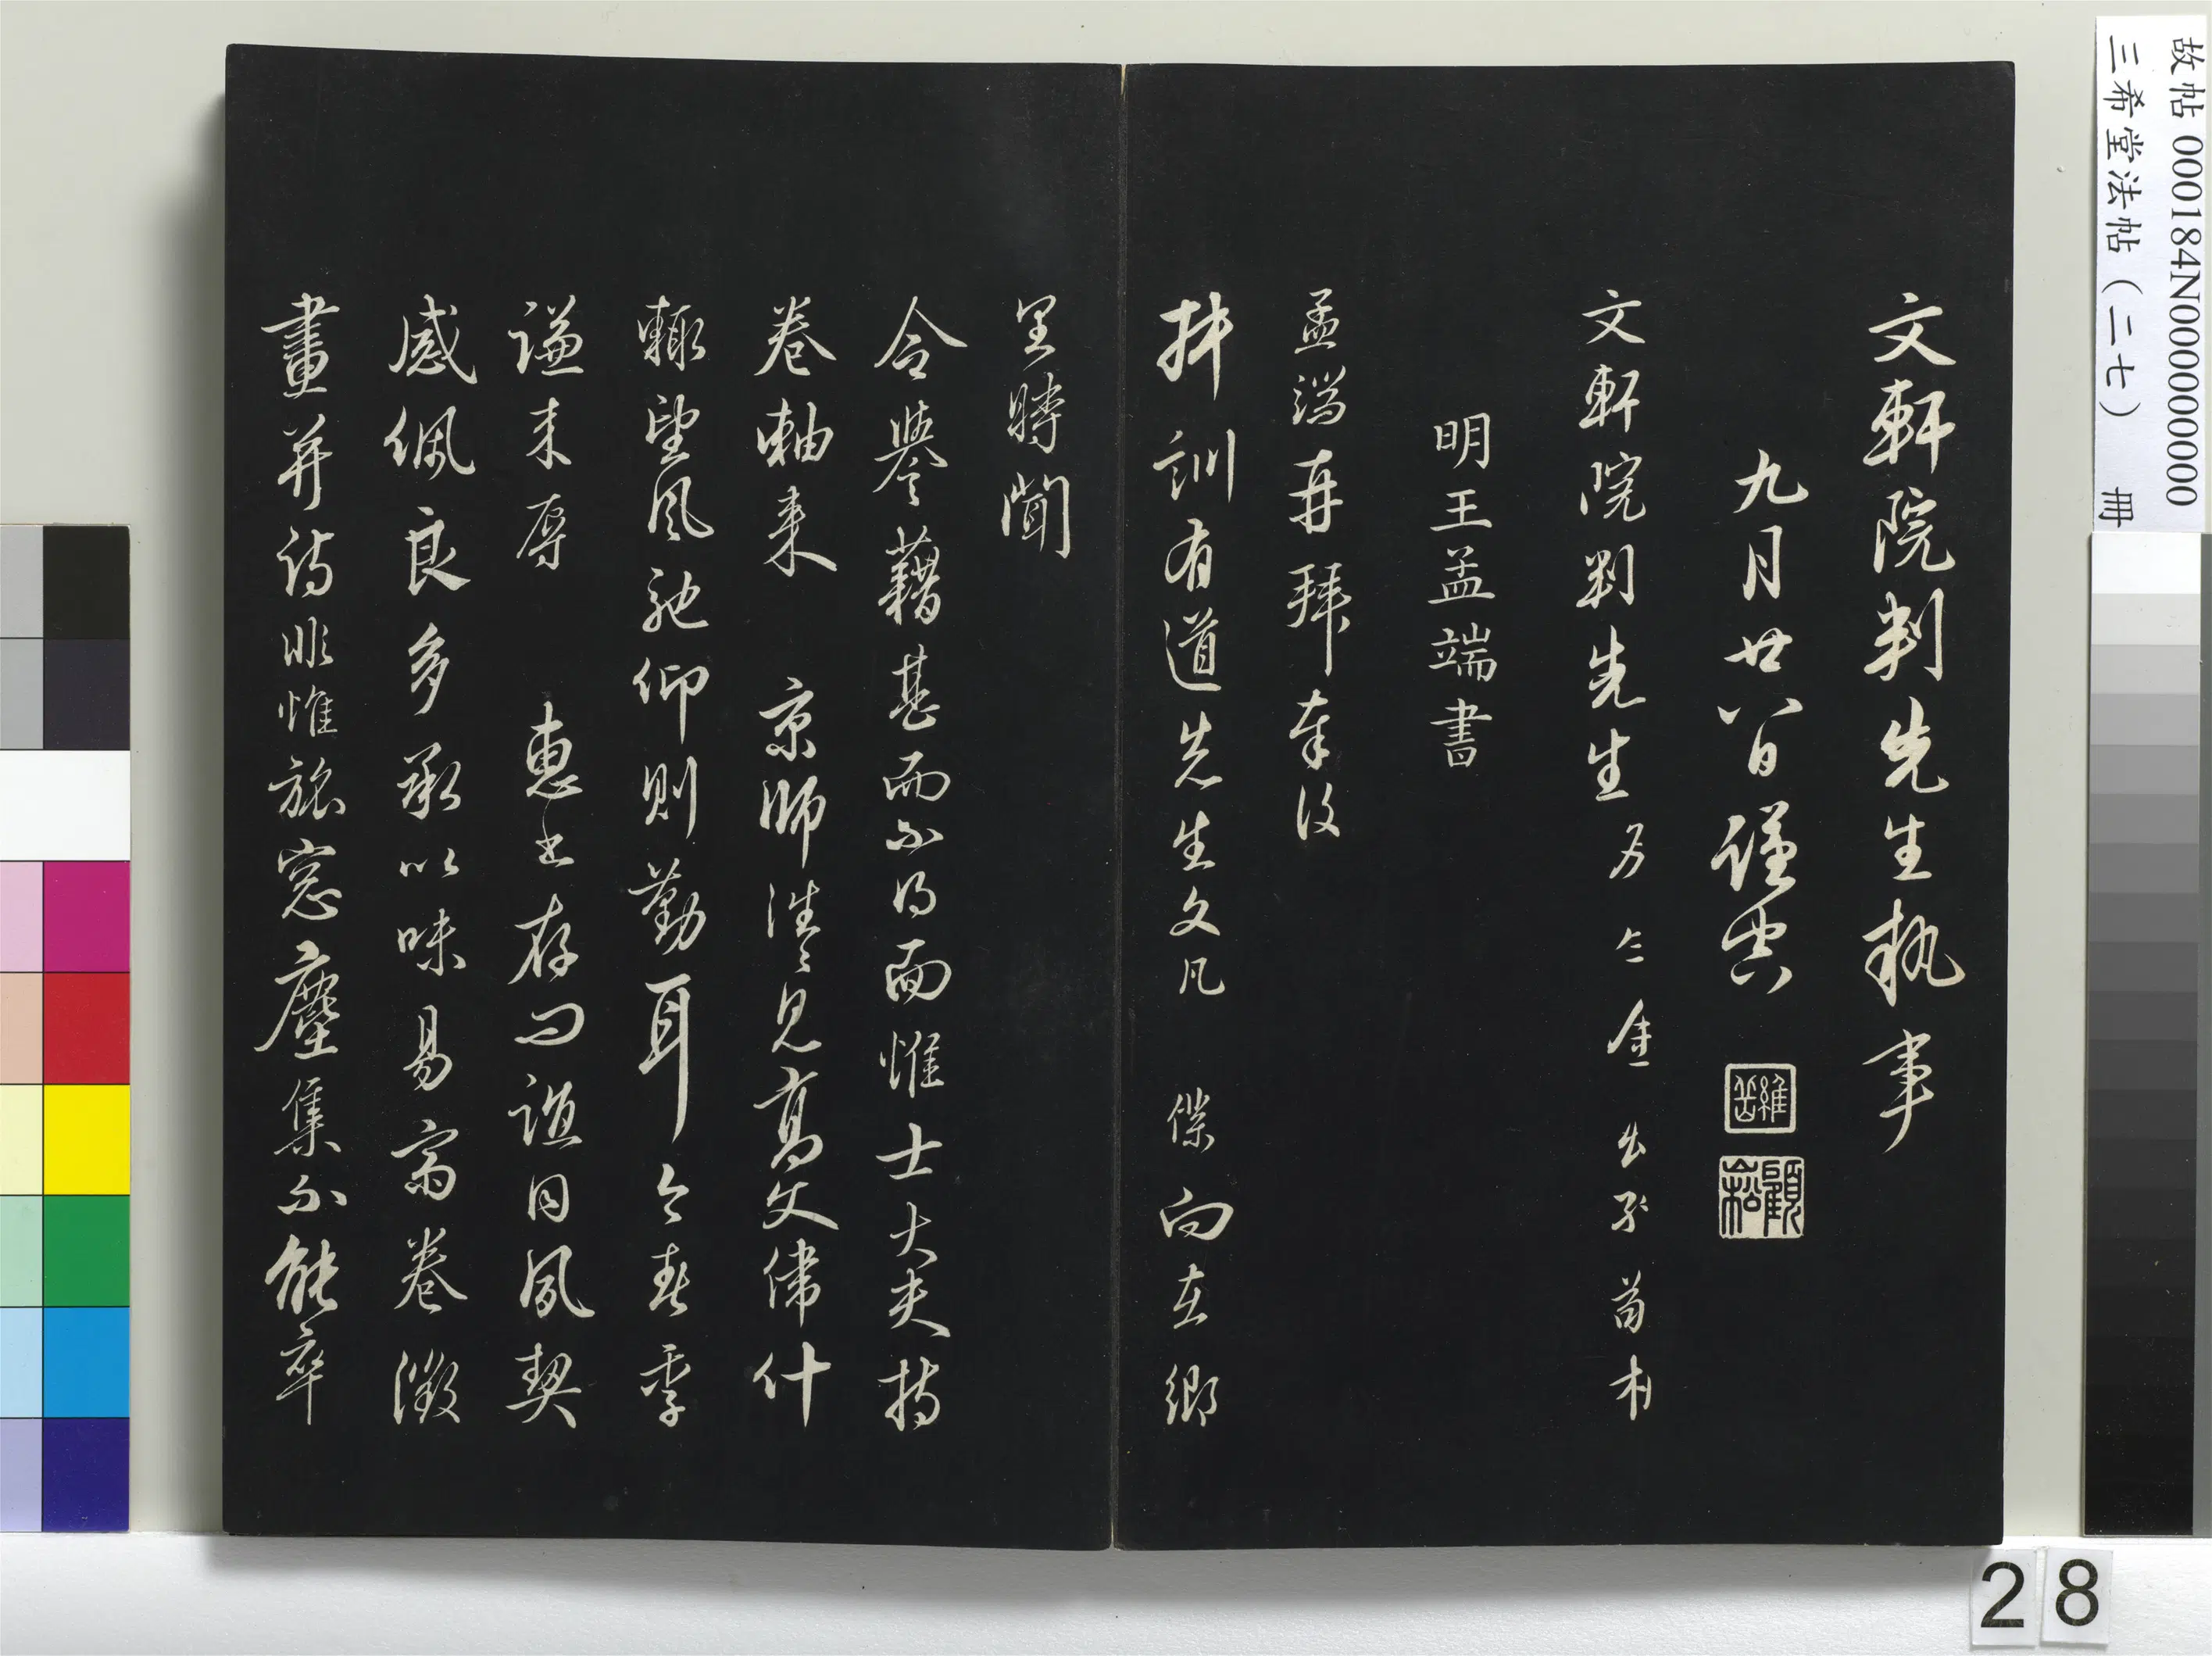 文軒院判先生執事
九月廿八日謹空
文軒院判先生
明王孟端書
孟端再拜奉復
拜訓有道先生文几 僕向在鄉
里時聞
令譽藉甚而不得面惟士大夫持
卷軸來 京師讀見高文偉什
輒望風馳仰則勤耳今春季
謙來辱 惠書存問誼同夙契
感佩良多承以味易齋卷徵
畫并詩非惟旅窓塵集不能卒
故帖 000184N000000000
三希堂法帖(二七) 冊
28